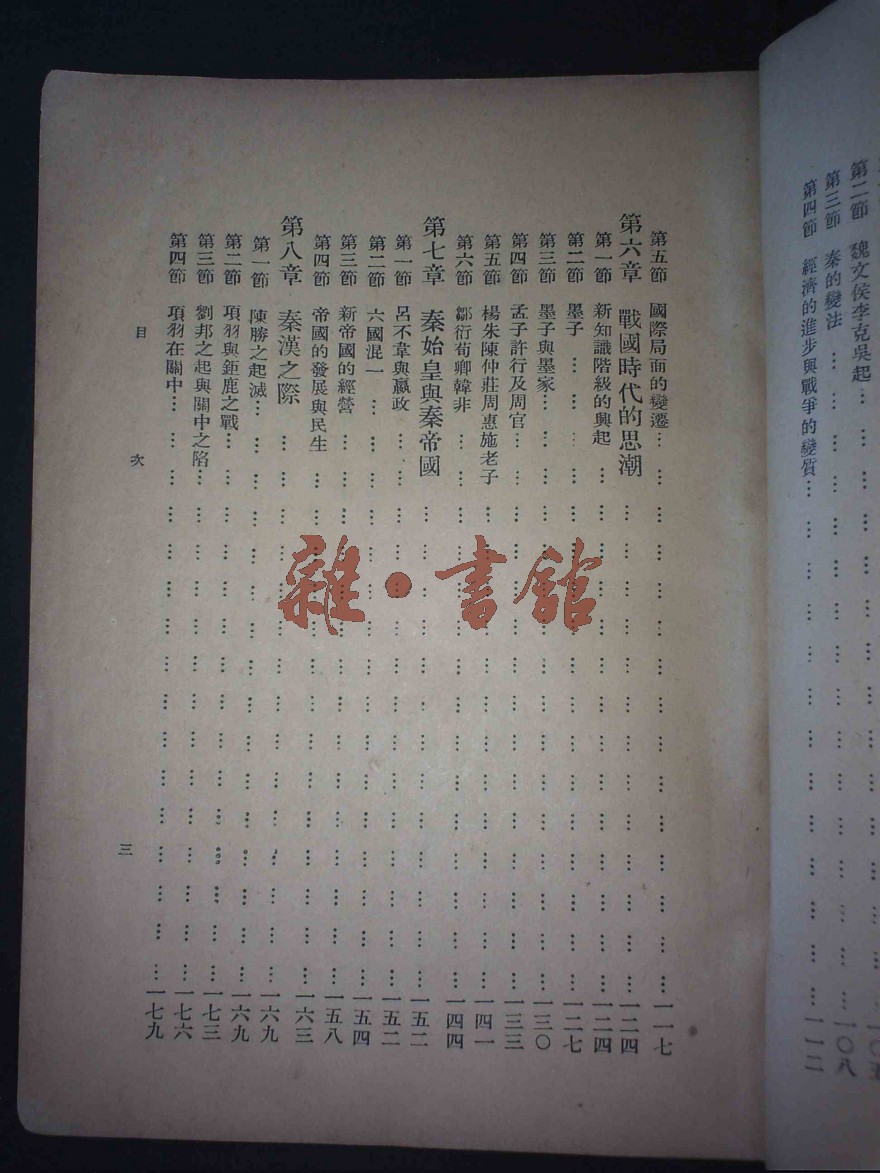 第二節 魏文侯李克吳起
第三節 秦的變法 一〇八
第四節 經濟的進步與戰爭的變質 一一二
第五節 國際局面的變遷 一一七
第六章 戰國時代的思潮 一二四
第一節 新知識階級的興起 一二四
第二節 墨子 一二七
第三節 墨子與墨家 一三〇
第四節 孟子許行及周官 一三三
第五節 楊朱陳仲莊周惠施老子 一四一
第六節 鄒衍荀卿韓非 一四四
第七章 秦始皇與秦帝國 一五二
第一節 呂不韋與嬴政 一五二
第二節 六國混一 一五四
第三節 新帝國的經營 一五八
第四節 帝國的發展與民生 一六三
第八章 秦漢之際 一六九
第一節 陳勝之起滅 一六九
第二節 項羽與鉅鹿之戰 一七三
第三節 劉邦之起與關中之陷 一七六
第四節 項羽在關中 一七九
目次 三
雜·書館